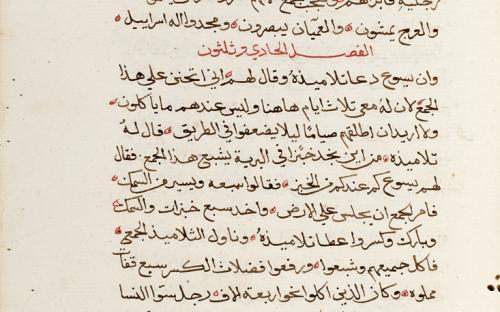 والعرج يمشون والعميان يبصرون ومجدوا اله اسراييل
الفصل الحادي وثلثون
وان يسوع دعا تلاميذه وقال لهم اني اتحنن علي هذا
الجمع لان له معي ثلاث ايام هاهنا وليس عندهم ما ياكلون
ولا اريد ان اطلقهم صياما ليلا يضعفوا في الطريق قال له
تلاميذه من اين نجد خبزا في البرية يشبع هذا الجمع فقال
لهم يسوع كم عندكم من الخبز فقالوا سبعه ويسير من السمك
فامر الجمع ان يجلس علي الارض واخد سبع خبزات والسمك
وبارك وكسر واعطا تلاميذه وناول التلاميذ الجمع
فاكل جميعهم وشبعوا ورفعوا فضلات الكسر سبع قفاف
مملوه وكان الذين اكلوا نحو اربعة الاف رجل سوا النسا